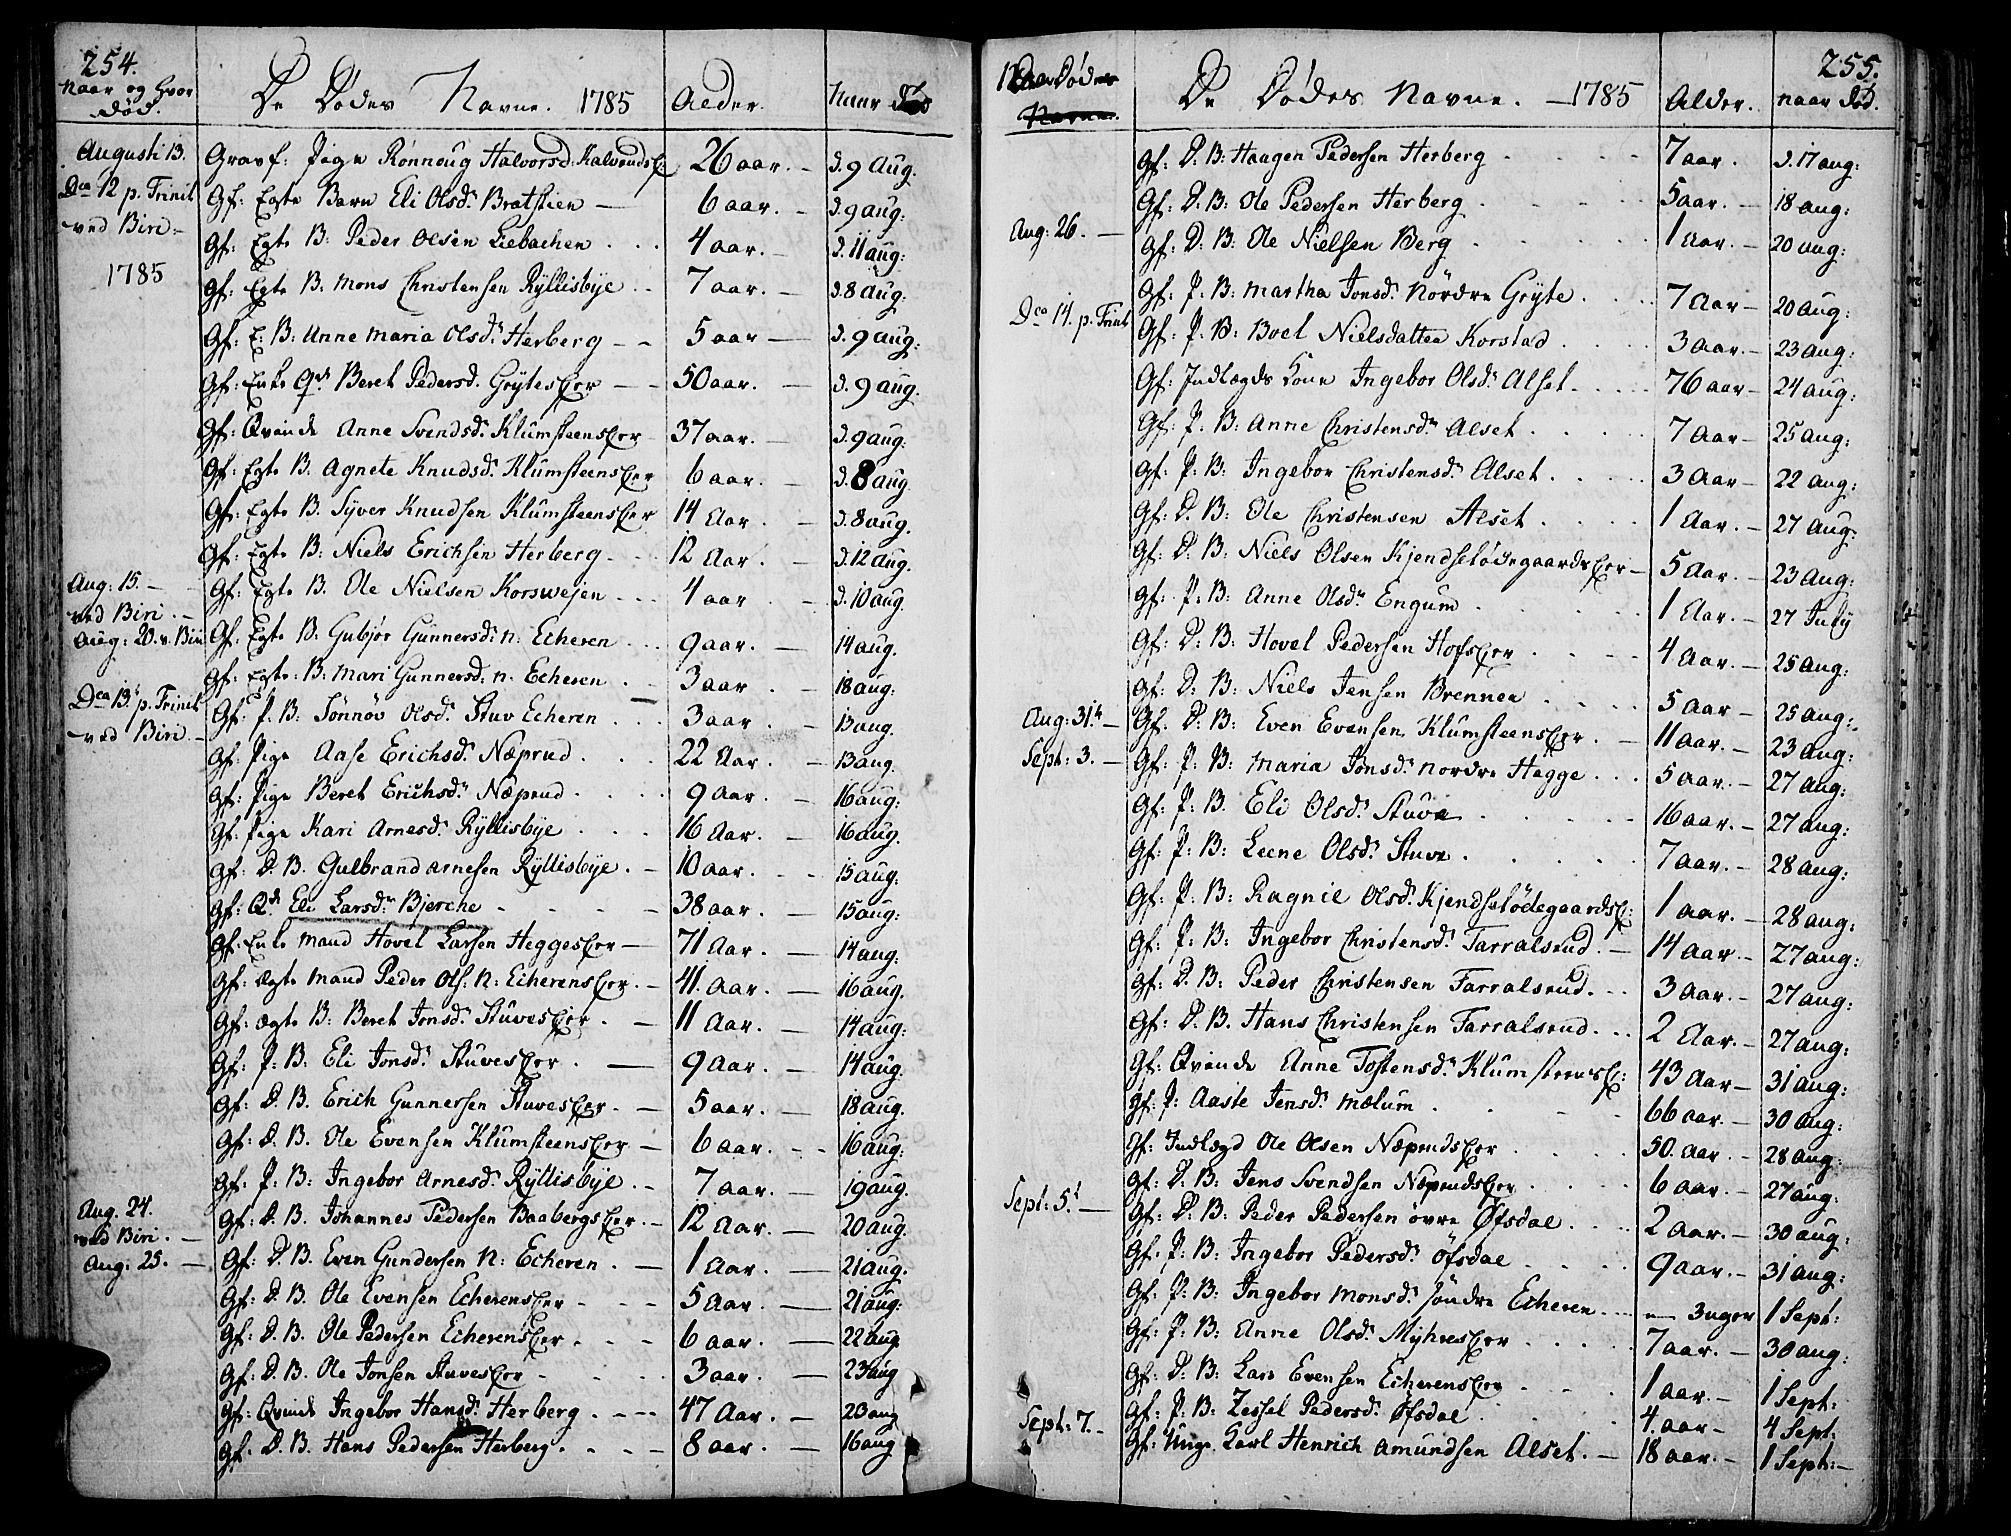 254.
Naar og hvor død.
De Dødes Navne. 1785
Alder.
Naar død
Augusti 13.
Dca 12 p. Trinit
ved Biri.
1785
Gravf: Pige Rønnoug Halvorsd: 26 aar. d. 9 Aug.
Gf: Egte Barn Eli Olsd: Bratstien 6 aar. d. 9 aug:
Gf: Egte B: Peder Olsen Liebachen 4 aar. d. 11 aug:
Gf: Egte B: Mons Christensen Ryllisbye 7 aar. d. 8 aug:
Gf: E: B: Anne Maria Olsd: Herberg 5 aar d. 9 aug:
Gf: Enke Qd Beret Pedersd. Gryteser 50 aar. d. 9 aug.
Gf: Qvinde Anne Svendsd: Klumsteenser 37 aar. d. 9 aug:
Gf: Egte B. Agnete Knudsd: Klumsteenser 6 aar. d. 8 aug.
Gf: Egte B. Syver Knudsen Klumsteenser 14 Aar. d. 8 aug.
Gf: Egte B: Niels Erichsen Herberg 12 Aar. d. 12 aug.
Aug: 15.
ved Biri.
Gf: Egte B. Ole Nielsen Korswejen 4 aar d. 10 aug.
Aug: 20. v. Biri
Gf: Egte B: Gubjør Gunnersd: n: Echeren 9 aar. 14 aug.
Gf: Egte: B: Mari Gunnersd: n. Echeren 3 aar. 18 aug:
Dca 13 p. Trinit
ved Biri.
Gf: P: B: Sønnøv Olsd: Stuv Echeren 3 aar. 13 aug.
Gf: Pige Aase Erichsd: Næprud 22 Aar. 13 aug.
Gf: Pige Beret Erichsd: Næprud 9 Aar. 16 aug:
Gf: Pige Kari Arnesd: Ryllisbye 16 Aar. 16 aug.
Gf: D. B. Gulbrand Arnesen Ryllisbye 10 aar. 15 aug:
Gf: Qd Eli Larsd: Bjerche 38 aar. 15 aug:
Gf: Enke Mand Hovel Larsen Heggeser 71 Aar. 14 aug:
Gf: Ægte Mand Peder Ols: n: Echerenser 41. Aar. 16 aug.
Gf: Ægte B: Beret Jonsd: Stuveser 11 Aar. 14 aug:
Gf: P: B: Eli Jonsd: Stuveser 9 Aar. 14 aug:
Gf: D. B. Erich Gunnersen Stuveser 5 aar. 18 aug.
Gf: D. B. Ole Evensen Klumsteenser 6 aar. 16 aug:
Gf: P: B: Ingebor Arnesd: Ryllisbye 7 aar. 19 aug.
Aug. 24.
ved Biri.
Gf: D. B. Johannes Pedersen Baabergser 12 Aar. 20 aug.
Aug: 25.
Gf: D. B. Even Gundersen n: Echeren 1 Aar. 21 aug:
Gf: D. B. Ole Evensen Echerenser 5 Aar. 21 aug:
Gf: D. B. Ole Pedersen Echerenser 6 aar. 22 aug
Gf: D. B. Ole Jonsen Stuveser 3 aar. 23 aug
Gf: Qvinde Ingebor Hansd: Herberg 47 Aar. 20 aug
Gf: D. B. Hans Pedersen Herberg 8 aar. 16 aug
255.
De Dødes Navne. 1785
Alder.
naar død.
Gf: D: B: Haagen Pedersen Herberg 7 aar. d. 17 aug:
Gf: D: B: Ole Pedersen Herberg 5 aar. 18 aug:
Aug: 26.
Gf: D: B: Ole Nielsen Berg 1 Aar. 20 aug:
Gf: P: B: Martha Jonsd: Nordre Gryte 7 Aar 20 aug:
Dca 14. p. Trinit
Gf: P: B: Boel Nielsdatter Korstad 3 aar. 23 aug:
Gf: Indlægds Kone Ingebor Olsd: Alset 76 aar 24 aug:
Gf: P: B: Anne Christensd: Alset 7 Aar 25 aug:
Gf: P: B: Ingebor Christensd: Alset 3 Aar 22 aug:
Gf: D: B: Ole Christensen Alset 1 Aar. 27 aug:
Gf: D: B: Niels Olsen Kjendseløedegaardser 5 Aar. 23 aug:
Gf: P: B: Anne Olsd: Engum 1 Aar. 27 July
Gf: D: B: Hovel Pedersen Hofser 4 Aar. 25 aug:
Gf: D: B: Niels Jensen Brennen 5 Aar 25 aug:
Aug: 31.
Gf: D: B: Even Evensen Klumsteenser 11 aar. 23 aug:
Sept: 3.
Gf: P: B: Maria Jonsd: nordre Hegge 5 aar. 27 aug:
Gf: P: B. Eli Olsd: Stuve 16 aar. 27 aug:
Gf: P: B: Leene Olsd: Stuve 7 aar. 28 aug:
Gf: P: B: Ragnil Olsd: Kjendseløedegaards 1 aar. 28 aug:
Gf: P: B: Ingebor Christensd: Farralsrud 14 aar. 27 aug:
Gf: D: B: Peder Christensen Farralsrud 3 Aar. 27 aug:
Gf: D: B. Hans Christensen Farralsrud 2 Aar. 27 aug:
Gf: Qvinde Anne Tostensd: Klumsteens 43 Aar 31 aug:
Gf: P: Aaste Jensd: Mælum 66 aar. 30 aug:
Gf: Indlægd Ole Olsen Næprudser 50. Aar. 28 aug:
Gf: D: B: Jens Svendsen Næprudser 6 aar. 27 aug:
Sept: 5.
Gf: D: B: Peder Pedersen øvre Øfsdal 2 aar. 30 aug:
Gf: P: B: Ingebor Pedersd: Øfsdal 9 aar. 31 aug:
Gf: P: B: Ingebor Monsd: søndre Echeren 3 uger 1 Sept:
Gf: P: B: Anne Olsd: Myhreser 7 aar. 30 aug:
Gf: D: B: Lars Evensen Echerenser 1 aar. 1 Sept:
Gf: P: B: Zessel Pedersd: Øfsdal 4. aar 4 Sept:
Sept: 7.
Gf: Unge Karl Henrich Amundsen Alset. 18 aar. 1 Sept: